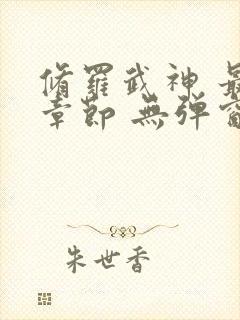 脩羅武神 最
章節 無彈窗
朱世香